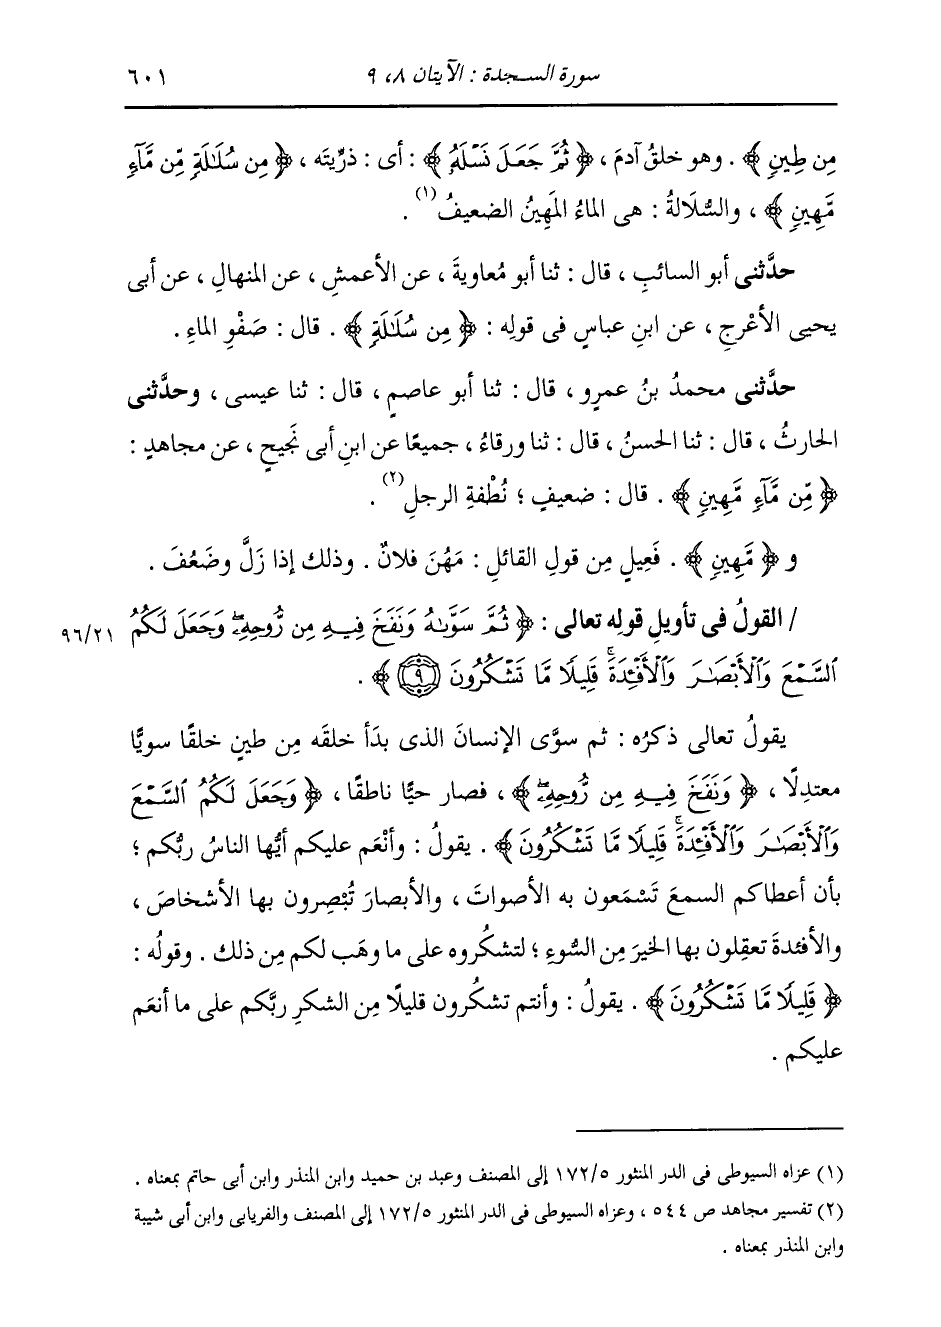 سورة السجدة : الآيتان ٨، ٩
٦٠١
مِن طِينٍ ﴾ . وهو خلقُ آدمَ ، ﴿ ثُمَّ جَعَلَ نَسْلَهُ ﴾ : أى : ذرِّيتَه ، ﴿ مِن سُلَٰلَةٍ مِّن مَّآءٍ
مَّهِينٍ ﴾ ، والسُّلَالةُ : هى الماءُ المَهِينُ الضعيفُ(١) .
حدَّثنى أبو السائبِ ، قال : ثنا أبو مُعاويةَ ، عن الأعمشِ ، عن المنهالِ ، عن أبى
يحيى الأعْرجِ ، عن ابنِ عباسٍ فى قولِه : ﴿ مِن سُلَٰلَةٍ ﴾ . قال : صَفْوِ الماءِ .
حدَّثنى محمدُ بنُ عمرٍو ، قال : ثنا أبو عاصمٍ ، قال : ثنا عيسى ، وحدَّثنى
الحارثُ ، قال : ثنا الحسنُ ، قال : ثنا ورقاءُ ، جميعًا عن ابنِ أبى نَجيحٍ ، عن مجاهدٍ :
﴿ مِّن مَّآءٍ مَّهِينٍ ﴾ . قال : ضعيفٍ ؛ نُطْفةِ الرجلِ(٢) .
و ﴿ مَّهِينٍ ﴾ . فَعِيلٍ مِن قولِ القائلِ : مَهُنَ فلانٌ . وذلك إذا زَلَّ وضَعُفَ .
/ القولُ فى تأويلِ قولِه تعالى : ﴿ ثُمَّ سَوَّىٰهُ وَنَفَخَ فِيهِ مِن رُّوحِهِۦۖ وَجَعَلَ لَكُمُ
٩٦/٢١
ٱلسَّمْعَ وَٱلْأَبْصَٰرَ وَٱلْأَفْـِٔدَةَۚ قَلِيلًا مَّا تَشْكُرُونَ ٩ ﴾ .
يقولُ تعالى ذكرُه : ثم سوَّى الإنسانَ الذى بدَأ خلقَه مِن طينٍ خلقًا سويًّا
معتدِلًا ، ﴿ وَنَفَخَ فِيهِ مِن رُّوحِهِۦۖ ﴾ ، فصار حيًّا ناطقًا ، ﴿ وَجَعَلَ لَكُمُ ٱلسَّمْعَ
وَٱلْأَبْصَٰرَ وَٱلْأَفْـِٔدَةَۚ قَلِيلًا مَّا تَشْكُرُونَ ﴾ . يقولُ : وأنْعَم عليكم أيُّها الناسُ ربُّكم ؛
بأن أعطاكم السمعَ تَسْمَعون به الأصواتَ ، والأبصارَ تُبْصِرون بها الأشخاصَ ،
والأفئدةَ تعقِلون بها الخيرَ مِن السُّوءِ ؛ لتشكُروه على ما وهَب لكم مِن ذلك . وقولُه :
﴿ قَلِيلًا مَّا تَشْكُرُونَ ﴾ . يقولُ : وأنتم تشكُرون قليلًا مِن الشكرِ ربَّكم على ما أنعَم
عليكم .
(١) عزاه السيوطى فى الدر المنثور ١٧٢/٥ إلى المصنف وعبد بن حميد وابن المنذر وابن أبى حاتم بمعناه .
(٢) تفسير مجاهد ص ٥٤٤ ، وعزاه السيوطى فى الدر المنثور ١٧٢/٥ إلى المصنف والفريابى وابن أبى شيبة
وابن المنذر بمعناه .